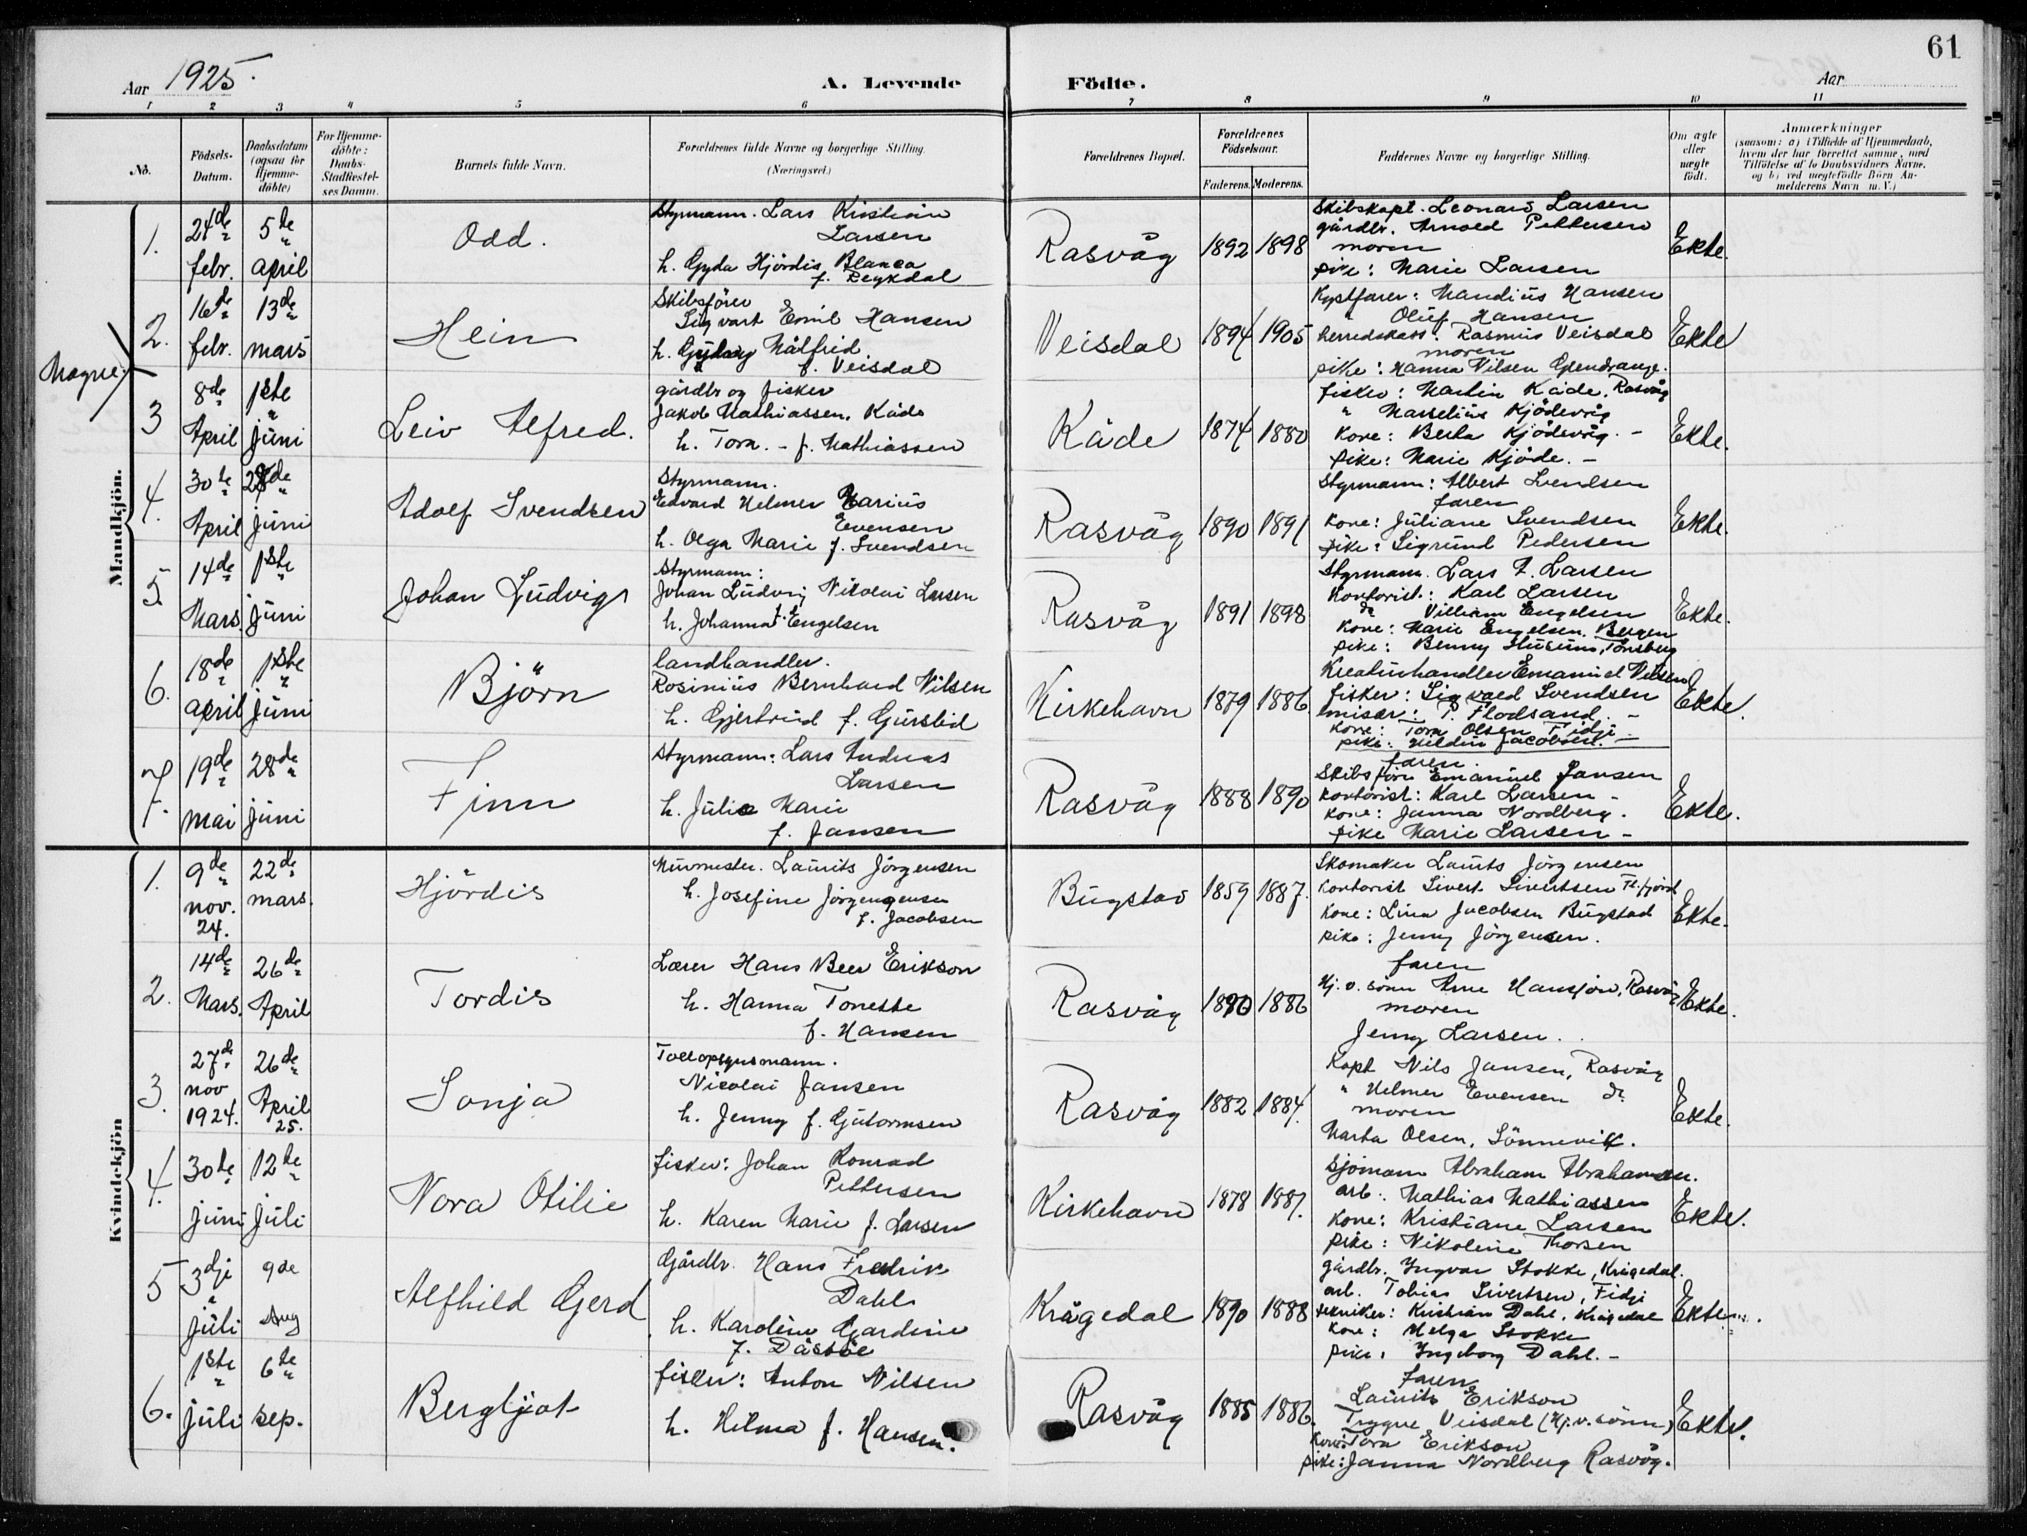 61
Aar 1925.
A. Levende Födte.
Aar
1 2 3 4 5 6 7 8 9 10 11
No.
Födsels-Datum.
Daabsdatum (ogsaa för Hjemmedöbte)
For Hjemmedöbte: Daabs-Stadfæstelses Datum.
Barnets fulde Navn.
Forældrenes fulde Navne og borgerlige Stilling. (Næringsvei.)
Forældrenes Bopæl.
Forældrenes Födselsaar.
Faderens. Moderens.
Faddernes Navne og borgerlige Stilling.
Om ægte eller uægte födt.
Anmærkninger
(saasom: a) i Tilfælde af Hjemmedaab,
hvem der har forrettet samme, med
Tilföielse af to Daabsvidners Navne,
og b) ved uægtefödte Börn An-
melderens Navn m. V.)
Mandkjön.
1.
24de febr.
5te april
Odd.
Styrmann. Lars Kristian
Larsen
h. Gyda Hjördis Blanca
Rasvåg
1892 1898
Skibskapt. Leonard Larsen
gårdbr. Arnold Pettersen
moren
pike: Marie Larsen
Ekte.
Magne
2.
16de febr.
13de mars
Hein
Skibsförer
Sigvart Emil Hansen
h. Målfrid
f. Veisdal
Veisdal
1894 1905
Kystfarer: Mandius Hansen
" Oluf Hansen
herredskass. Rasmus Veisdal
moren
pike: Hanna Nilsen
Ekte
3
8de April
1ste juni
Leiv Alfred.
gårdbr og fisker
Jakob Mathiassen. Kåde
h. Tora. - f. Mathiassen
Kåde
1874 1880
fisker: Martin Kåde, Rasvåg
" Marselius Kjödevåg
Kone: Berta Kjödevåg. -
pike: Marie Kjöde. -
Ekte.
4.
30te April
28de juni
Adolf Svendsen
Styrmann.
Edvard Helmer Marius
Evensen
h. Olga Marie f. Svendsen
Rasvåg
1890 1891
Styrmann: Albert Svendsen
faren
Kone: Juliane Svendsen
pike: Sigrund Pedersen
Ekte.
5.
14de Mars.
1ste juni
Johan Ludvig
Styrmann:
Johan Ludvig Nikolai Larsen
h. Johanna f. Engelsen
Rasvåg
1891 1898
Styrmann. Lars A. Larsen
Kontorist: Karl Larsen
do Villiam Engelsen
Kone: Marie Engelsen. Bergen
pike: Benny Husum, Tönsberg
Ekte.
6.
18de april
1ste juni
Björn
landhandler.
Rosinius Bernhard Nilsen
h. Gjertrud f. Gurslid
Kirkehavn
1879 1886
Kreaturhandler Emanuel Nilsen
fisker: Sigvald Svendsen
misær: P. Flodsand. -
Kone: Tora Olsen Fidji
pike: Jacobsen. -
Ekte.
7.
19de mai
28de juni
Finn
Styrmann: Lars Andreas
Larsen
h. Julie Marie
f. Jansen
Rasvåg
1888 1890
faren.
Skibsförer Emanuel Jansen
Kontorist: Karl Larsen -
Kone: Janna Nordberg.
pike Marie Larsen -
Ekte.
Kvindekjön
1.
9de nov. 24.
22de mars.
Hjördis
Murmester. Laurits Jörgensen
h. Josefine Jörgensen
f. Jacobsen
Bugstad
1859 1887.
Skomaker Laurits Jörgensen
Kontorist Sivert Sivertsen Fl.fjord
Kone: Lina Jacobsen Bugstad
pike: Jenny Jörgensen.
Ekte.
2.
14de Mars.
26de April
Tordis
Lærer Hans Beer Erikson
h. Hanna Tonette
f. Hansen
Rasvåg
1890 1886
faren
Hj. v. sönn Arne Hansson, Rasvåg
moren
Jenny Larsen.
Ekte.
3.
27de nov 1924.
26de April 25.
Sonja
Tollopsynsmann.
Nicolai Jansen
h. Jenny f. Gutormsen
Rasvåg
1882 1884.
Kapt Nils Jansen, Rasvåg
" Helmer Evensen do
moren
Marta Olsen, Sönnevik.
Ekte.
4.
30te juni
12te juli
Nora Otilie
fisker: Johan Konrad
Pettersen
h. Karen Marie f. Larsen
Kirkehavn
1878 1887.
Sjömann Abraham Abrahamsen.
arb. Mathias Mathiassen
Kone: Kristiane Larsen
pike: Nikoline Thorsen
Ekte.
5
3dje juli
9de Aug
Alfhild Gerd
Gårdbr. Hans Fredrik
Dahl
h. Karoline Gardine
Krågedal
1890 1888
gårdbr. Yngvar Stokke, Krågedal.
arb. Tobias Sivertsen, Fidji
tekniker: Kristian Dahl, Krågedal
Kone: Helga Stokke
pike: Ingeborg Dahl. -
Ekte
6.
1ste juli
6te sep.
Bergljot
fisker: Anton Nilsen
h. Hilma f. Hansen.
Rasvåg
1885 1886.
faren
Laurits Erikson
Trygve Veisdal (Hj.v.sönn)
Kone: Tora Erikson
pike: Janna Nordberg Rasvåg.
Ekte.